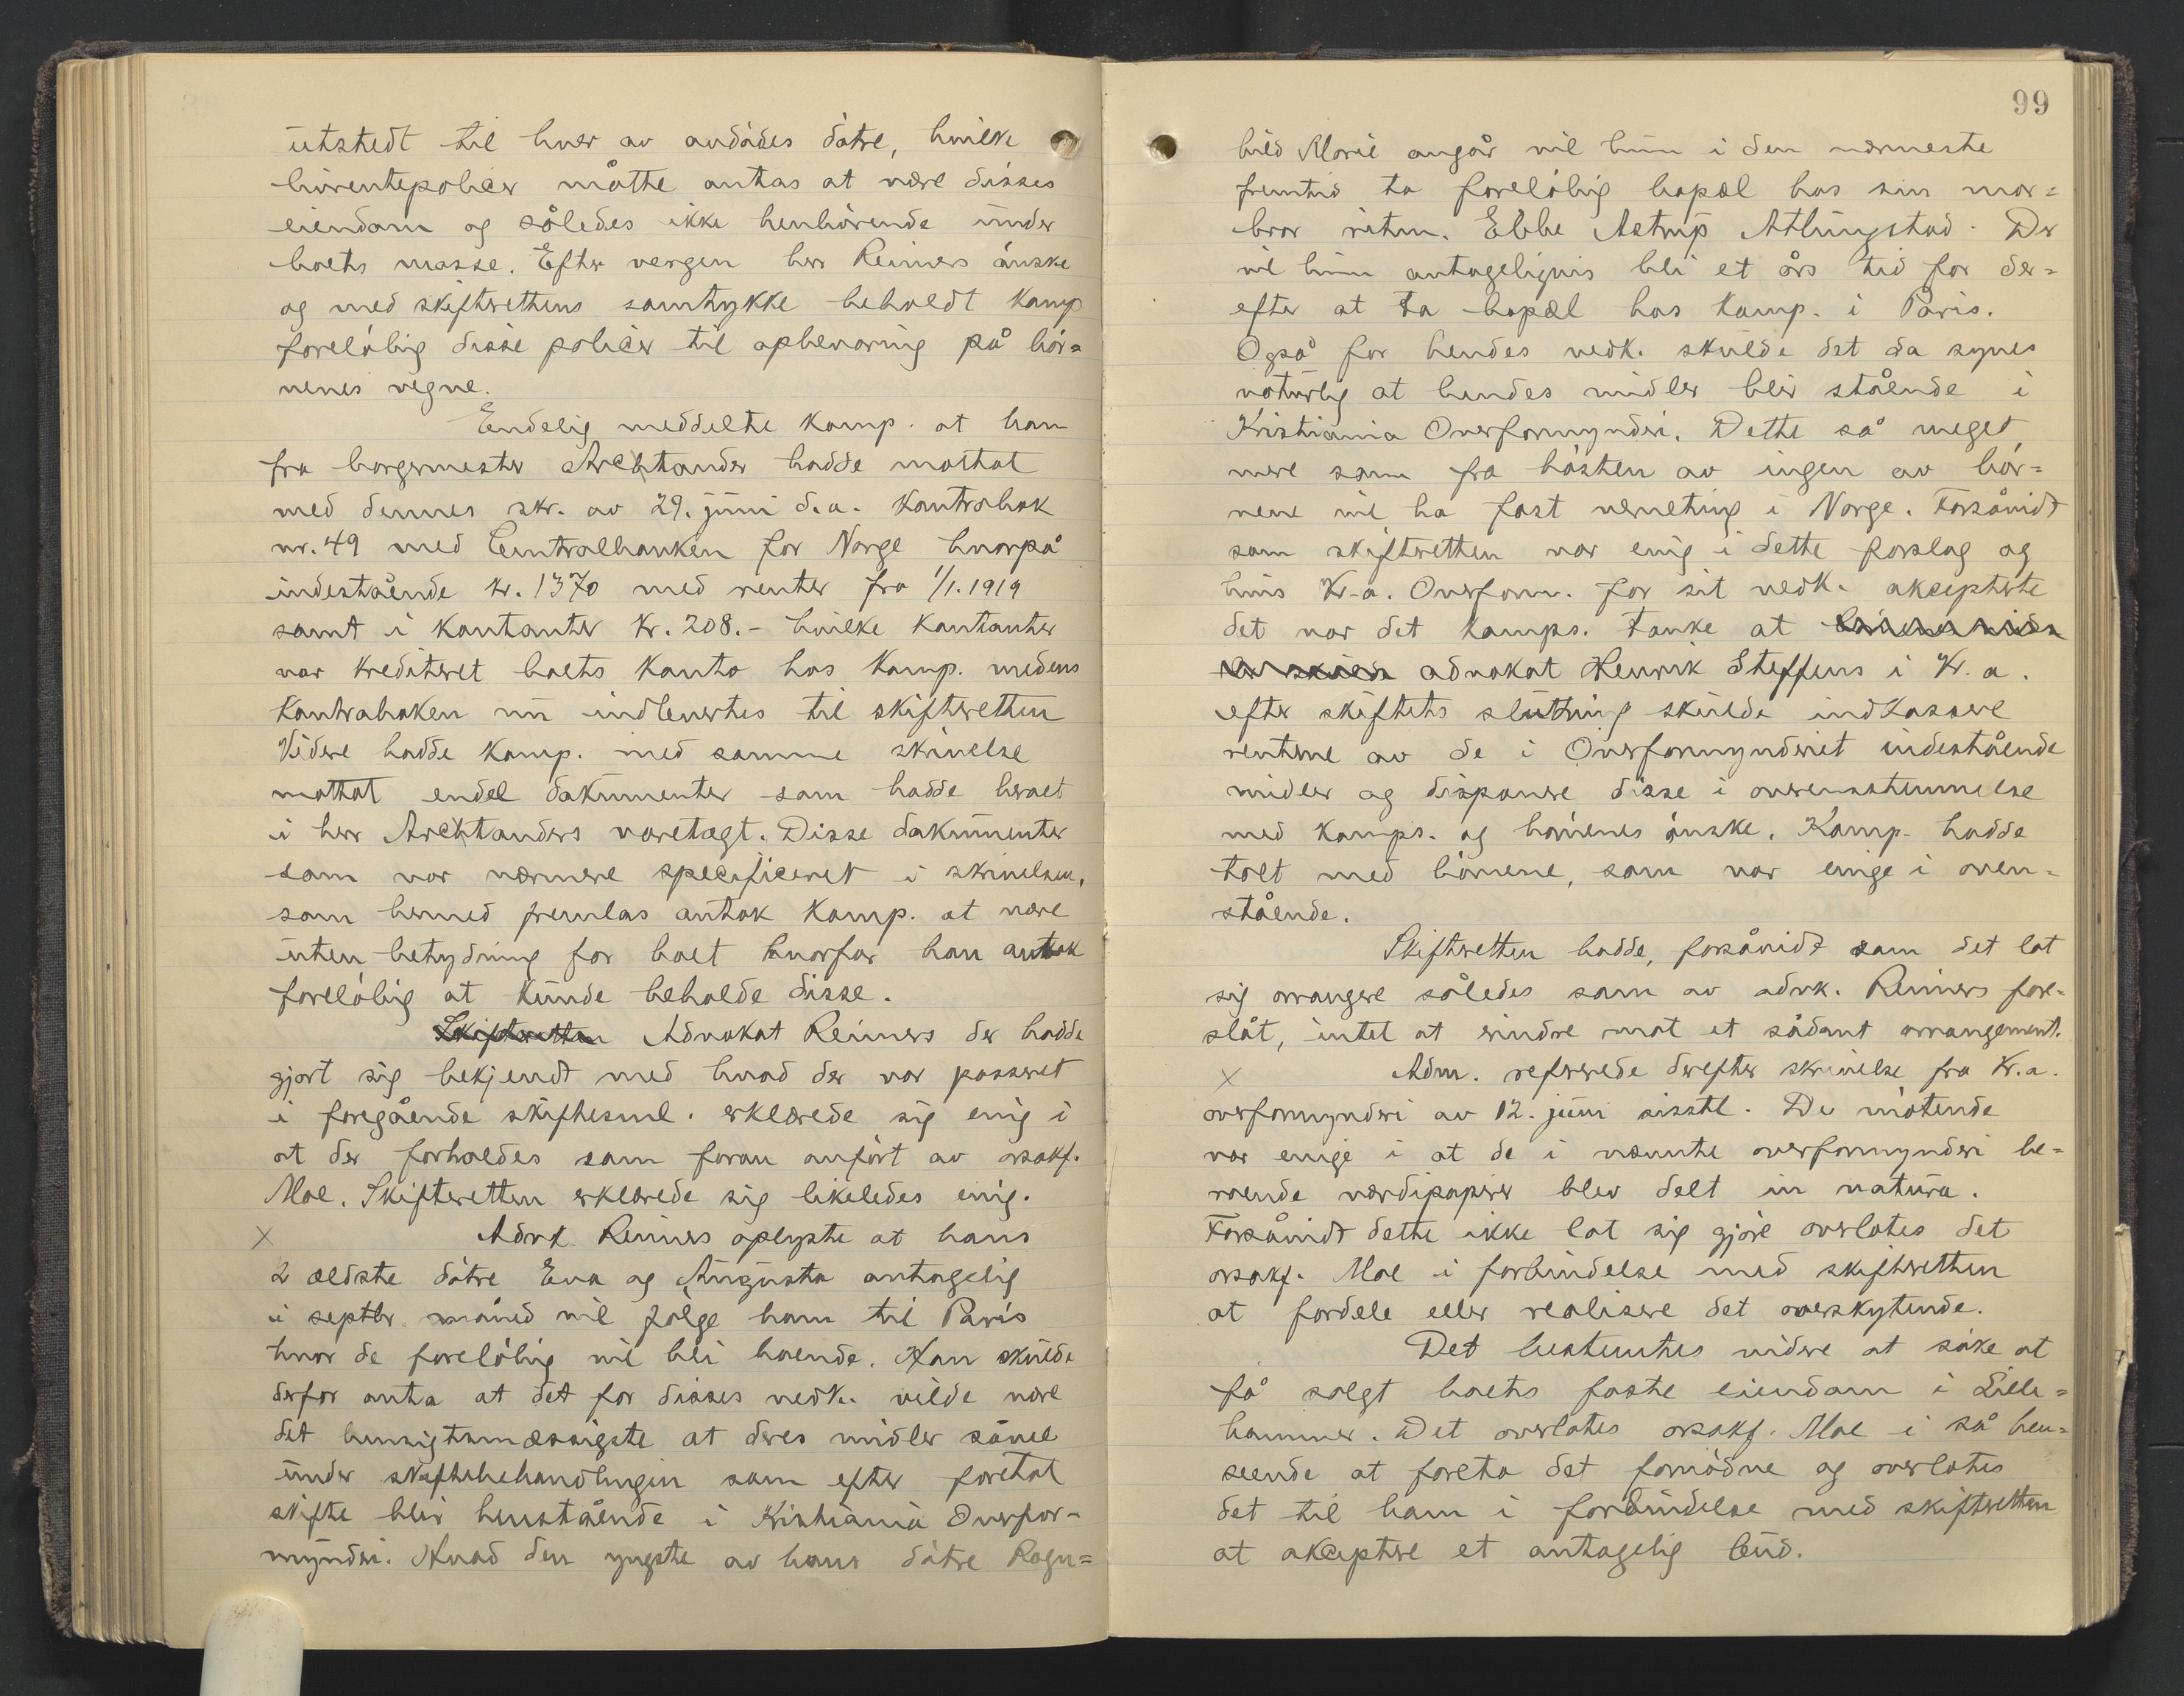 utstedt til hver av avdödes dötre, hvilke
livrentepolicer måtte antas at være disses
eiendom og således ikke henhörende under
boets masse. Efter vergen herr Reimers önske
og med skifterettens samtykke beholdt komp
forelöbig disse policer til opbevaring på bör=
nenes vegne.
Endelig meddelte komp. at han
fra borgermester Arctander hadde mottat
med dennes skr. av 29. juni d.a. Kontrabok
nr. 49 med Centralbanken for Norge hvorpå
indestående kr. 1370 med renter fra 1/1. 1919
samt i kontanter kr. 208.- hvilke kontanter
var krediteret boets konto hos komp. medens
kontraboken nu indlevertes til skifteretten
Videre hadde komp. med samme skrivelse
mottat endel dokumenter som hadde beroet
i herr Arctanders varetægt. Disse dokumenter
som var nærmere specificeret i skrivelsen,
som hermed fremlas antok komp. at være
uten betydning for boet hvorfor han antok
forelöbig at kunde beholde disse.
Skifteretten Advokat Reimers der hadde
gjort sig bekjendt med hvad der var passeret
i foregående skiftesml. erklærede sig enig i
at der forholdes som foran anfört av orsakf.
Moe. Skifteretten erklærede sig likeledes enig.
x Advk. Reimers oplyste at hans
2 ældste dötre Eva og Augusta antagelig
i septbr. måned vil fölge ham til Paris
hvor de forelöbig vil bli boende. Han skulde
derfor anta at det for disses vedk. vilde være
det hensigtsmæssigste at deres midler såvel
under skiftebehandlingen som efter foretat
skifte blir henstående i Kristiania Overfor-
mynderi. Hvad den yngste av hans dötre Ragn=
99
hild Marie angår vil hun i den nærmeste
fremtid ta forelöbig bopæl hos sin mor=
bror ritm. Ebbe Astrup Atlungstad. Der
vil hun antageligvis bli et års tid for der=
efter at ta bopæl hos komp. i Paris.
Også for hendes vedk. skulde det da synes
naturlig at hendes midler blir stående i
Kristiania Overformynderi. Dette så meget
mere som fra hösten av ingen av bör=
nene vil ha fast verneting i Norge. Forsåvidt
som skifteretten var enig i dette forslag og
hvis Kr-a. Overform. for sit vedk. akcepterte
det var det komps. tanke at
advokat Henrik Steffens i Kr.a.
efter skiftets slutning skulde indkassere
renterne av de i Overformynderiet indestående
midler og disponere disse i overensstemmelse
med komps. og börnenes önske. Komp. hadde
talt med börnene, som var enige i oven-
stående.
Skifteretten hadde, forsåvidt som det lot
sig arrangere således som av advk. Reimers fore-
slåt, intet at erindre mot et sådant arrangement.
x Adm. refererede derefter skrivelse fra Kr.a.
overformynderi av 12. juni sisstl. De mötende
var enige i at de i nævnte overformynderi be=
roende værdipapirer blev delt in natura.
Forsåvidt dette ikke lot sig gjöre overlotes det
orsakf. Moe i forbindelse med skifteretten
at fordele eller realisere det overskytende.
Det bestemtes videre at söke at
få solgt boets faste eiendom i Lille=
hammer. Det overlotes orsakf. Moe i så hen=
seende at foreta det fornödne og overlotes
det til ham i forbindelse med skifteretten
at akceptere et antagelig bud.